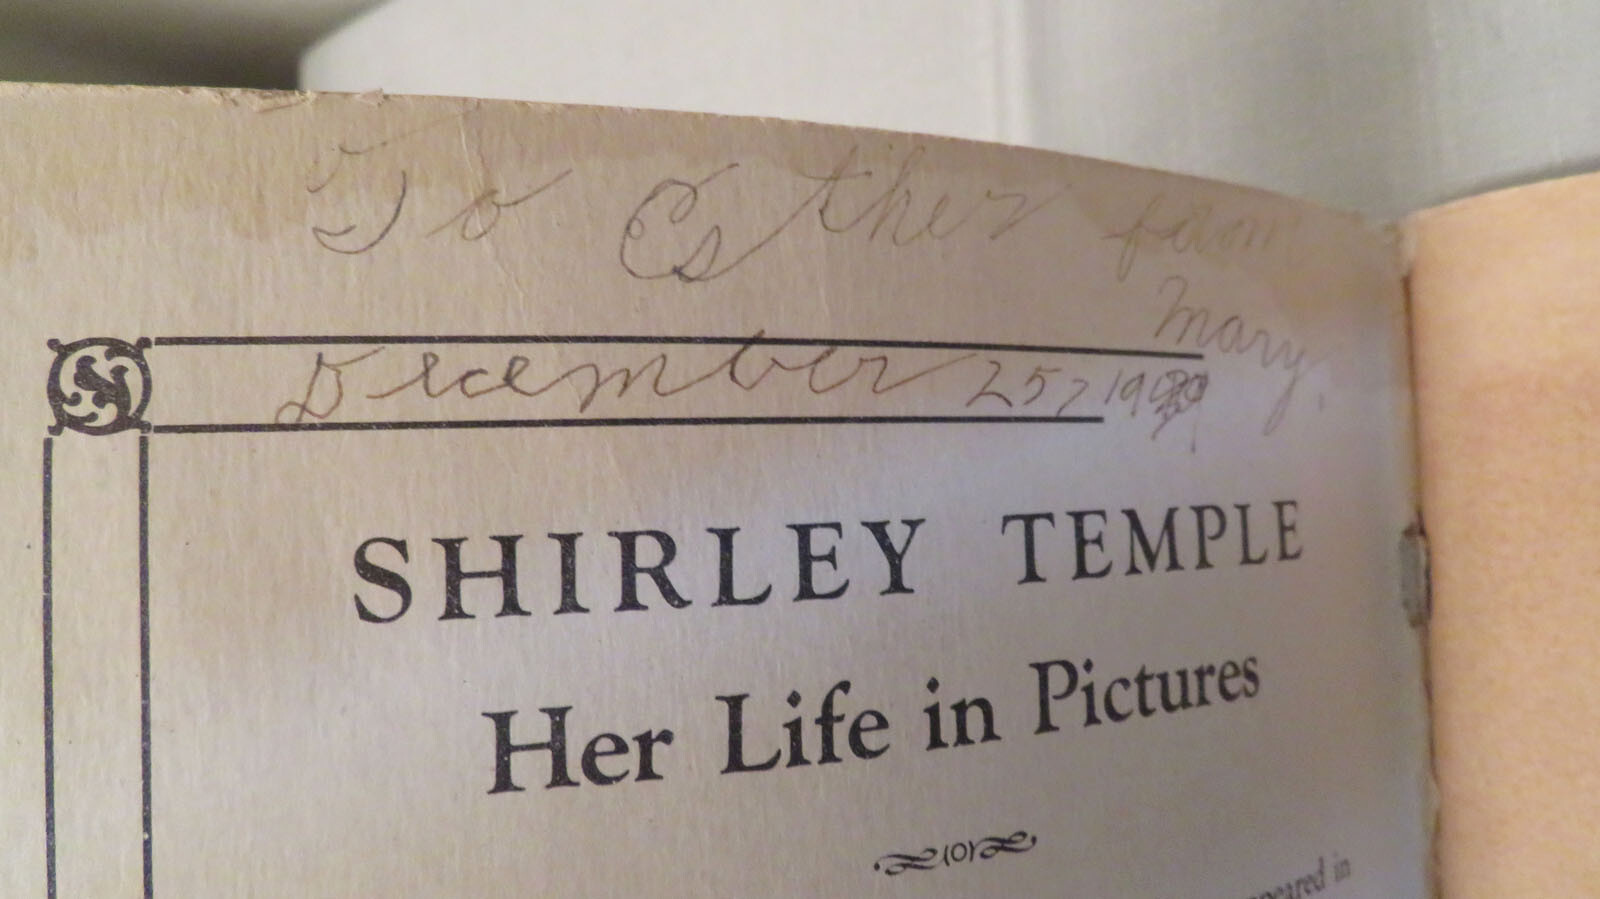 To Esther from
Mary.
December 25, 19
SHIRLEY TEMPLE
Her Life in Pictures
in